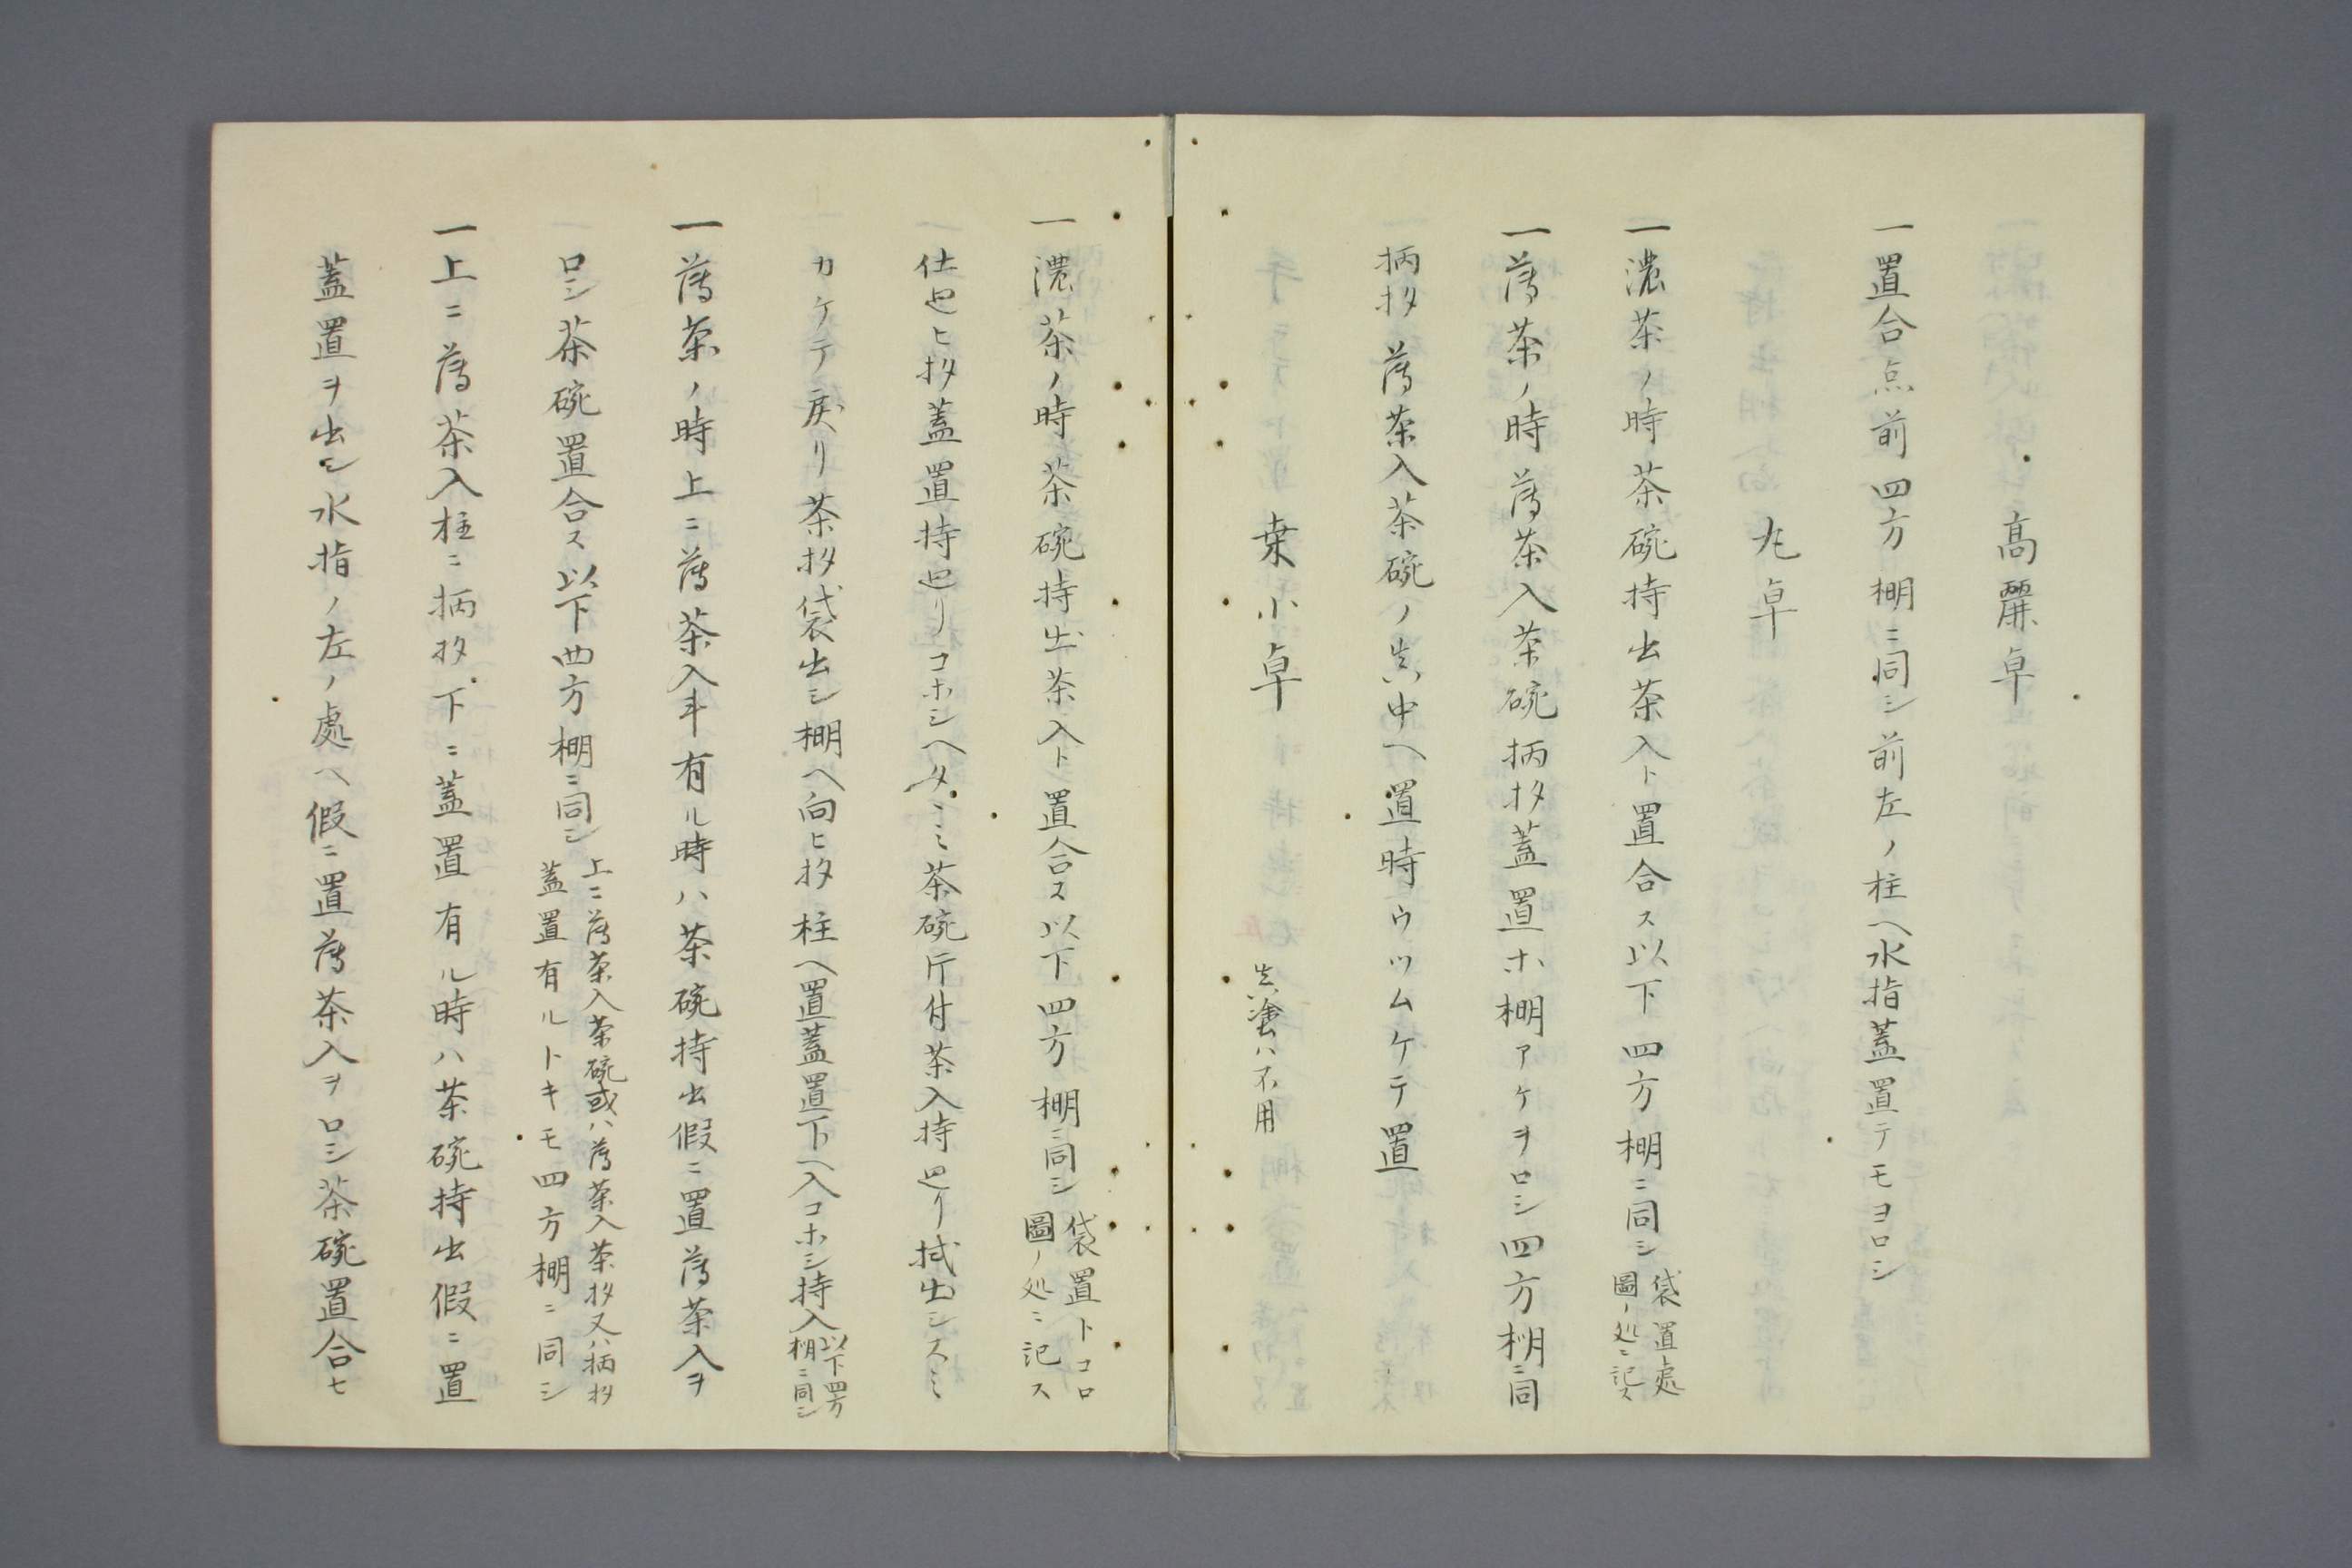 高麗卓
一置合点前四方棚ニ同シ前左ノ柱ヘ水指蓋置テモヨロシ
丸卓
一濃茶ノ時茶碗持出茶入ト置合ス以下四方棚ニ同シ
袋置處
圖ノ処ニ記ス
一薄茶ノ時薄茶入茶碗柄杓蓋置ホ棚アケヲロシ四方棚ニ同
柄杓薄茶入茶碗ノ真中ヘ置時ウツムケテ置
桒小卓
真塗ハ不用
一濃茶ノ時茶碗持出茶入ト置合ス以下四方棚ニ同シ
袋置トコロ
圖ノ処ニ記ス
仕廻ヒ杓蓋置持廻リコホシヘタミミ茶碗斤付茶入持廻リ拭出シスミ
カケテ戻リ茶杓袋出シ棚ヘ向ヒ杓柱ヘ置蓋置下ヘ入コホシ持入
以下四方
棚ニ同シ
一薄茶ノ時上ニ薄茶入斗有ル時ハ茶碗持出假ニ置薄茶入ヲ
ロシ茶碗置合ス以下四方棚ニ同シ
上ニ薄茶入茶碗或ハ薄茶入茶杓又ハ柄杓
蓋置有ルトキモ四方棚ニ同シ
一上ニ薄茶入柱ニ柄杓下ニ蓋置有ル時ハ茶碗持出假ニ置
蓋置ヲ出シ水指ノ左ノ處ヘ假ニ置薄茶入ヲロシ茶碗置合セ